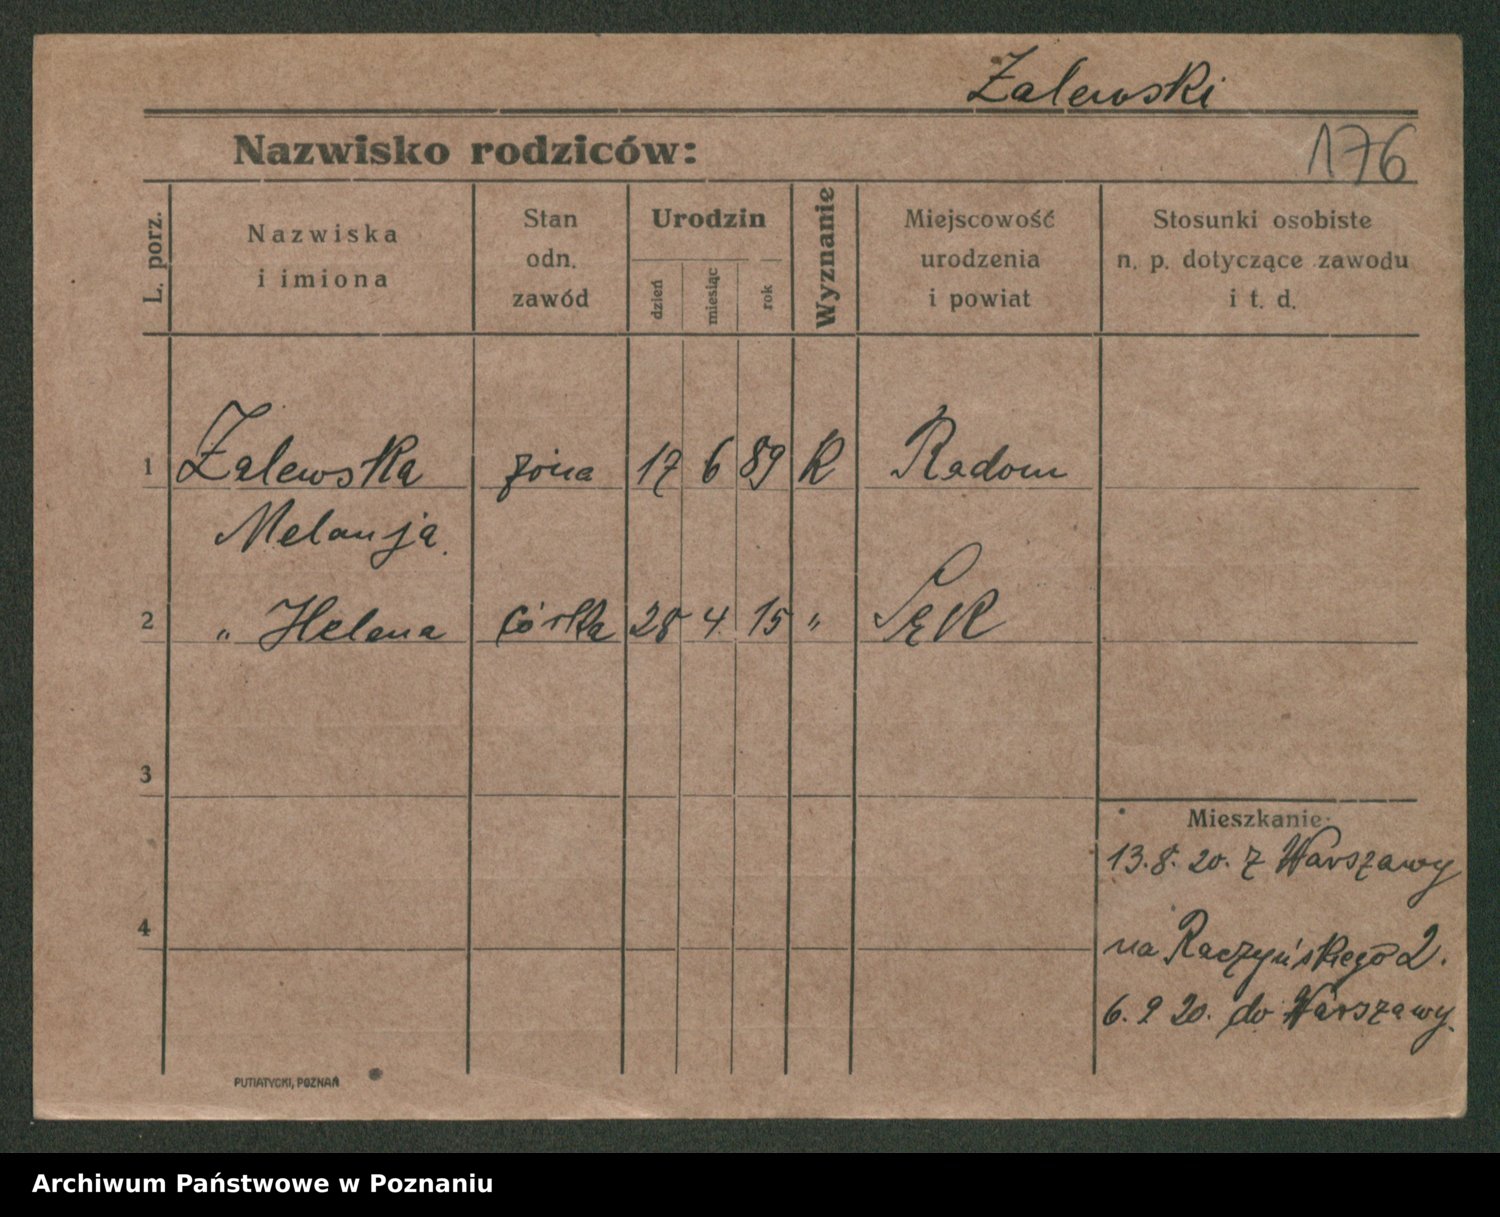 Zalewski
176
Nazwisko rodziców:
L. porz.
Nazwiska
i imiona
Stan
odn.
zawód
Urodzin
dzień
miesiąc
rok
Wyznanie
Miejscowość
urodzenia
i powiat
Stosunki osobiste
n. p. dotyczące zawodu
i t. d.
1 Zalewska żona 17 6 89 R Radom
Melanja
2 " Helena córka 28 4 15 " Sęk
3
Mieszkanie:
13.8.20. z Warszawy
4
na Raczyńskiego 2.
6.9.20. do Warszawy.
PUTIATYCKI, POZNAŃ
Archiwum Państwowe w Poznaniu